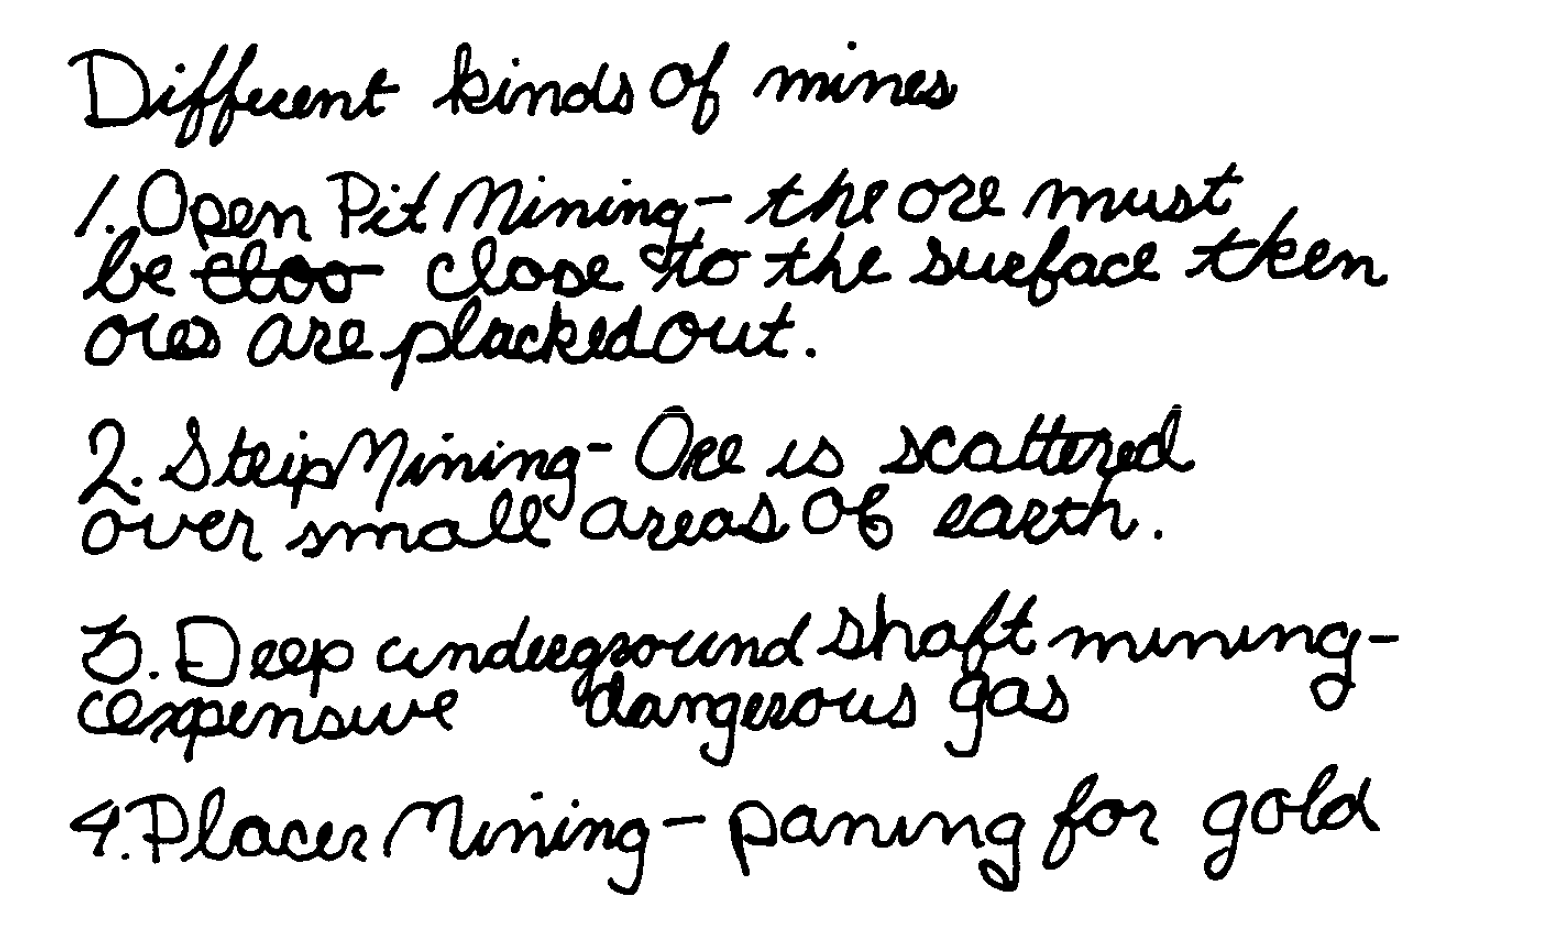 Different kinds of mines
1. Open Pit Mining- the ore must
be cloo close to the surface then
ores are placked out.
2. Strip Mining- Ore is scattered
over small areas of earth.
3. Deep underground shaft mining-
expensive dangerous gas
4. Placer Mining- paning for gold